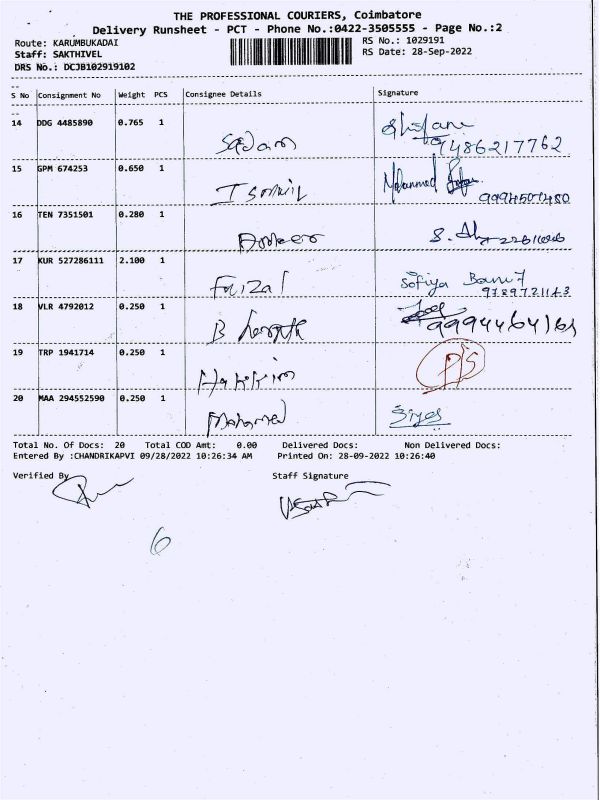 THE PROFESSIONAL COURIERS, Coimbatore
Delivery Runsheet - PCT - Phone No.:0422-3505555 - Page No.:2
Route: KARUMBUKADAI RS No.: 1029191
Staff: SAKTHIVEL RS Date: 28-Sep-2022
DRS No.: DCJB102919102
S No Consignment No Weight PCS Consignee Details Signature
14 DDG 4485890 0.765 1 Sadam
9486217762
15 GPM 674253 0.650 1 Ismail Mohammed
16 TEN 7351501 0.280 1
17 KUR 527286111 2.100 1 Faizal Sofiya Banu
9789721143
18 VLR 4792012 0.250 1 B
19 TRP 1941714 0.250 1
20 MAA 294552590 0.250 1 Mohamed
Total No. Of Docs: 20 Total COD Amt: 0.00 Delivered Docs: Non Delivered Docs:
Entered By :CHANDRIKAPVI 09/28/2022 10:26:34 AM Printed On: 28-09-2022 10:26:40
Verified By Staff Signature
6